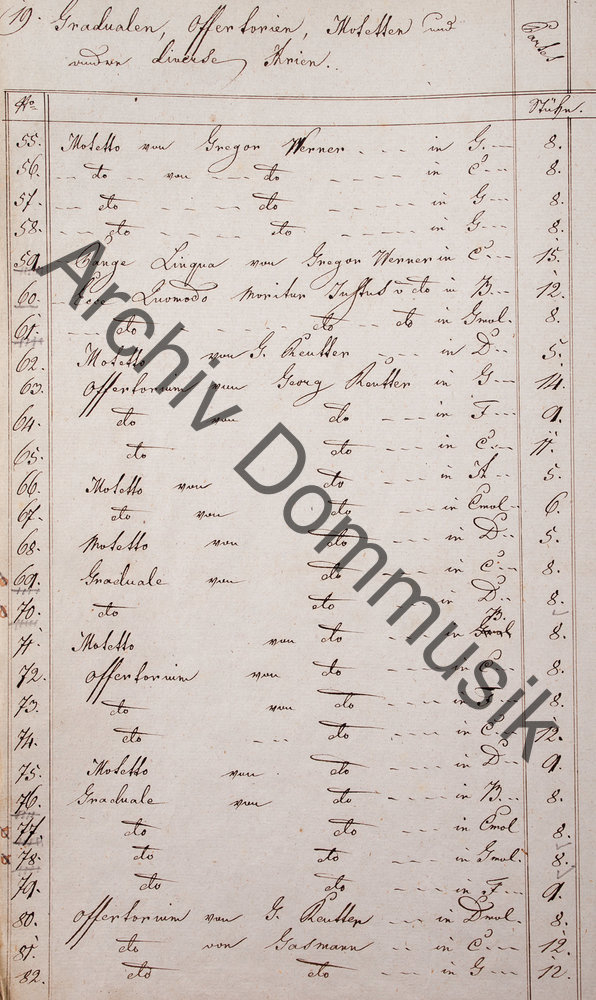 19. Gradualen, Offertorien, Motetten und
andere diverse Arien.
Partes
No. Stück.
55. Motetto von Gregor Werner - - - in G. - - 8.
56. - - do - - von - - do - - - - in C - - 8.
57. - - do - - - do - - - - in G - - 8.
58. - - do - - - do - - - - in G - - 8.
59. Pange Lingua von Gregor Werner in C - - 15.
60. Ecce Quomodo Moritur Justus v do in B - - 12.
61. - - do - - - do - - do in Gmol. 8.
62. Motetto von G. Reutter - - - in D - - 5.
63. Offertorium von Georg Reutter in G - - 14.
64. do von do - - - in F - - 9.
65. do do - - - in C - - 11.
66. Motetto von do - - - in A - - 5.
67. do von do - - in Emol - - 6.
68. Motetto von do - - in D - - 5.
69. Graduale von do - - in C - - 8.
70. do do - - - in D - - 8.
71. Motetto von do - - in B. 8.
72. Offertorium von do - - - in C - - 8.
73. do von do - - in - - 8.
74. do - - - do - - - in C. - - 12.
75. Motetto von do - - - in D - - 9.
76. Graduale von do - - - in B. - - 8.
77. do do - - - in Emol 8.
78. do do - - - in Gmol. 8.
79. do do - - - in F - - 9.
80. Offertorium von G. Reutter - - in Dmol. 8.
81. do von Gasmann - - in C - - 12.
82. do do - - - in G - - 12.
Archiv Dommusik